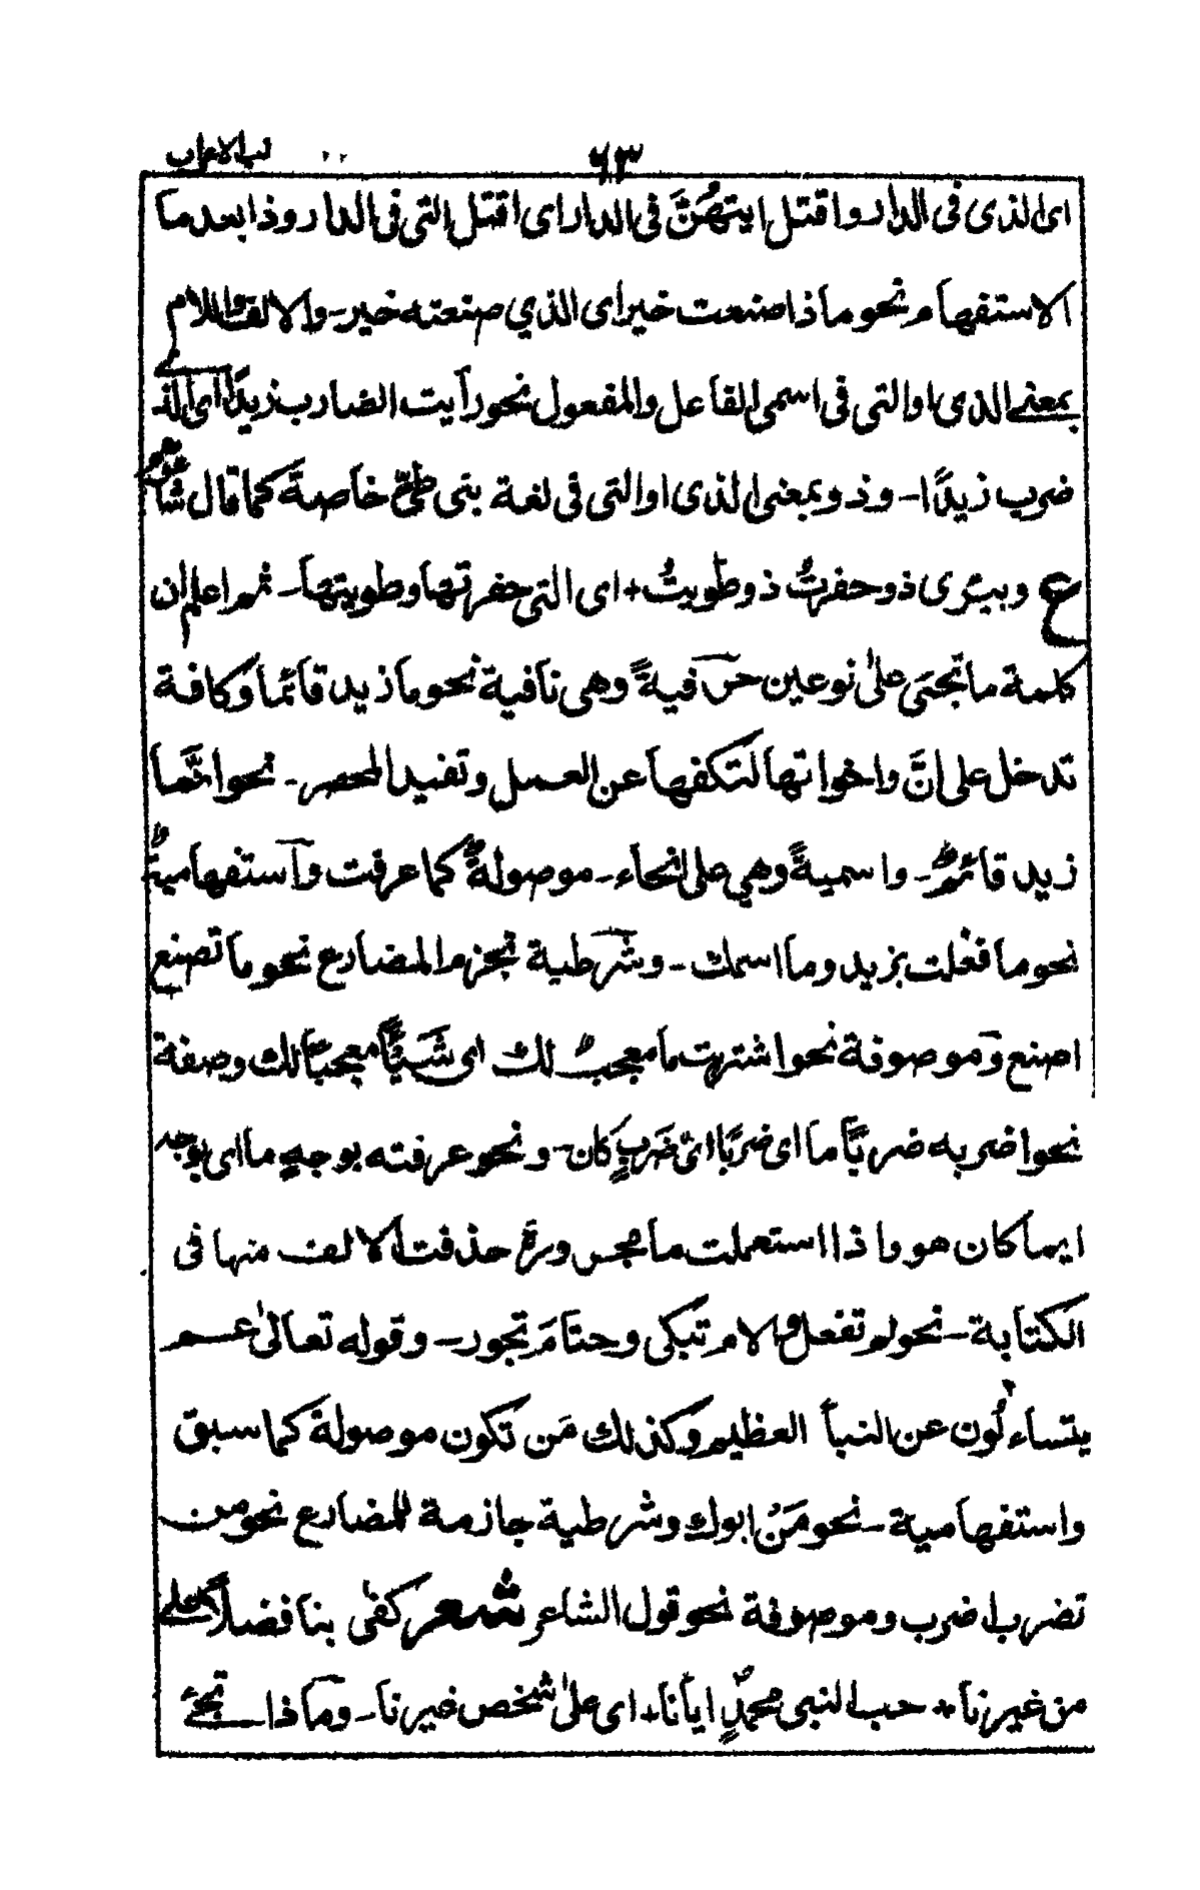 ٦٣
لب الاعراب
اى الذى فى الدار واقتل ايتهُنَّ فى الدار اى اقتل التى فى الدار وذا بعد ما
الاستفهام نحو ماذا صنعت خير اى الذي صنعته خير- والالف واللام
بمعنے الذى او التى فى اسمى الفاعل والمفعول نحو رأيت الضارب زيدًا اى الذے
ضرب زيدًا- وذو بمعنى الذى او التى فى لغة بنى طىّ خاصةً كما قال شاعرهم
ع وبيرى ذو حفرتُ ذو طويتُ + اى التى حفرتها وطويتها- ثم اعلم ان
كلمة ما تجئ على نوعين حرفيةً وهى نافية نحو ما زيد قائما وكافة
تدخل على انَّ واخواتها لتكفها عن العمل وتفيد الحصر- نحو انَّما
زيد قائم- واسميةً وهي على انحاء- موصولةٌ كما عرفت واستفهاميةٌ
نحو ما فعلت بزيد وما اسمك- وشرطية تجزم المضارع نحو ما تصنع
اصنع وموصوفة نحو اشتريت ما معجبٌ لك اى شيئًا معجبًا لك وصفة
نحو اضربه ضربًا ما اى ضربًا اىّ ضربٍ كان- ونحو عرفته بوجهٍ ما اى بوجه
ايما كان هو واذا استعملت ما مجرورة حذفت الالف منها فى
الكتابة- نحو لم تفعل والام تبكى وحتام تجور- وقوله تعالىٰ عم
يتساءلون عن النبأ العظيم وكذلك مَن تكون موصولة كما سبق
واستفهامية- نحو مَنْ ابوك وشرطية جازمة للمضارع نحو من
تضرب اضرب وموصوفة نحو قول الشاعر شعر كفىٰ بنا فضلاً علے
من غيرنا * حب النبى محمدٍ ايانا + اى علىٰ شخص غيرنا- وماذا تجئ